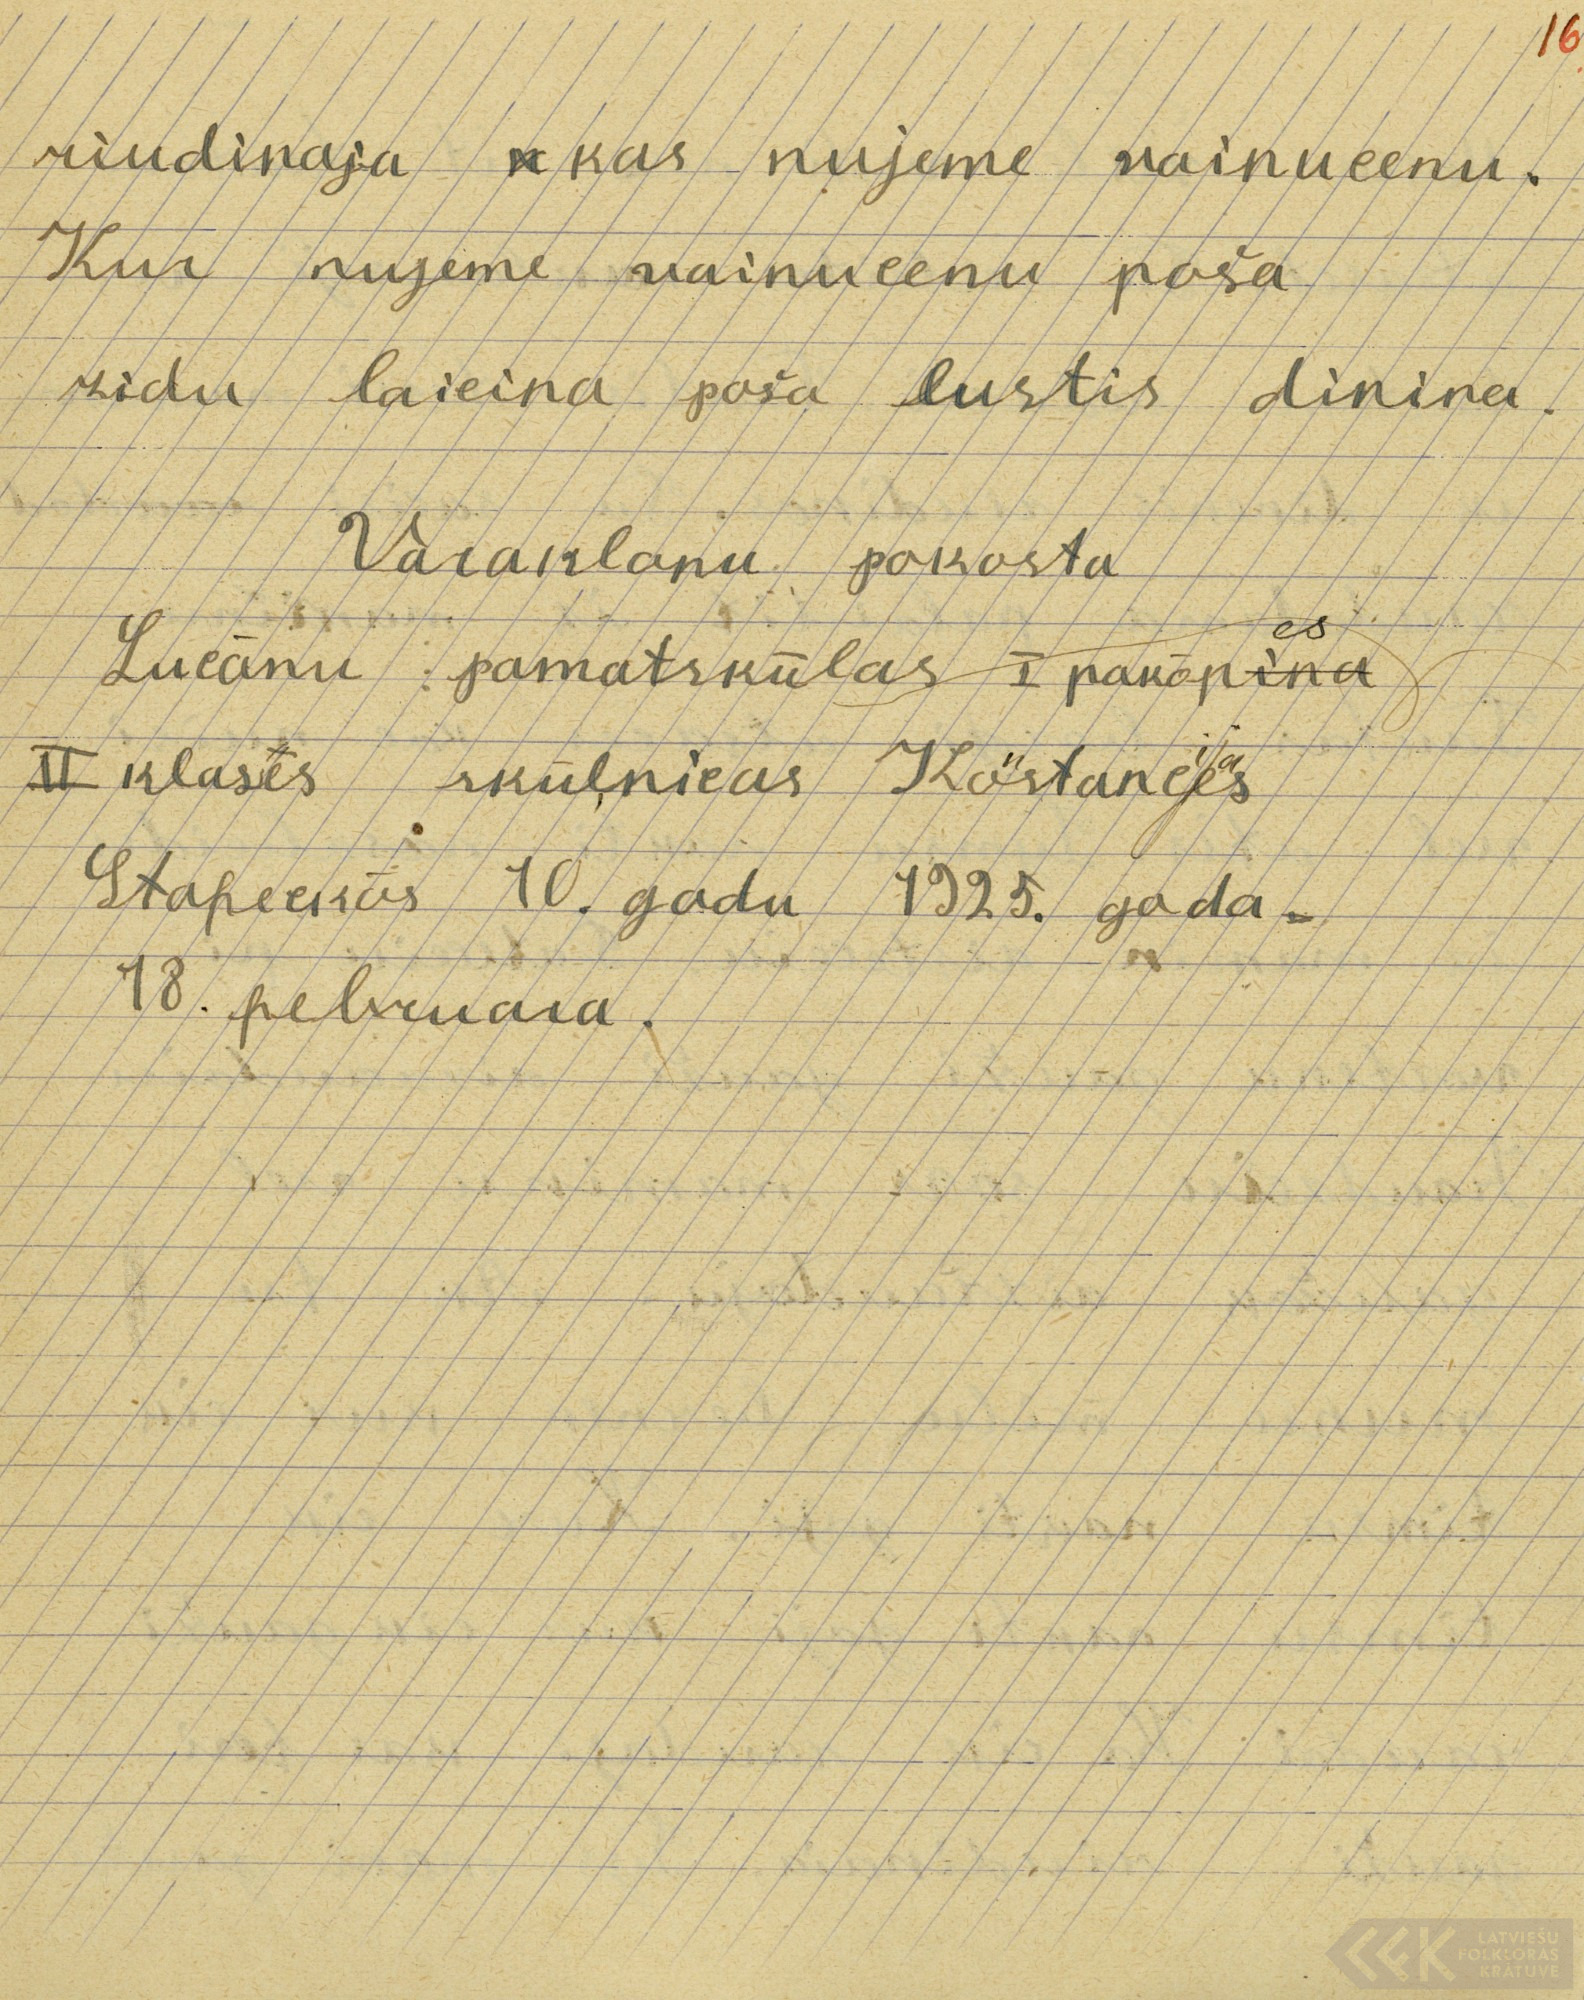 16
riudinaja kas nujeme vainuceņu.
Kur nujeme vainuceņu poša
zidu laicina poša lustis dinina.
Varakļanu pokosta
Lucānu pamatskūlas I pakōpes
II klasēs skūļnicas Kōstancijas
Stapeckōs 10. godu 1925. goda
18. pebruara.
LATVIEŠU
FOLKLORAS
KRĀTUVE